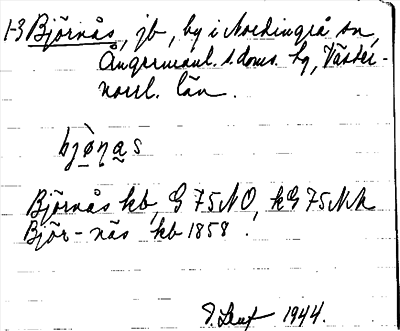 1-3 Björnås, jb, by i Nordingrå sn,
Ångermanl. s. doms. hg, Väster-
norrl. län.
bjø̀ṇas
Björnås kb, G 75 NO, kG 75 NA
Björ-nås kb 1858.
1944.